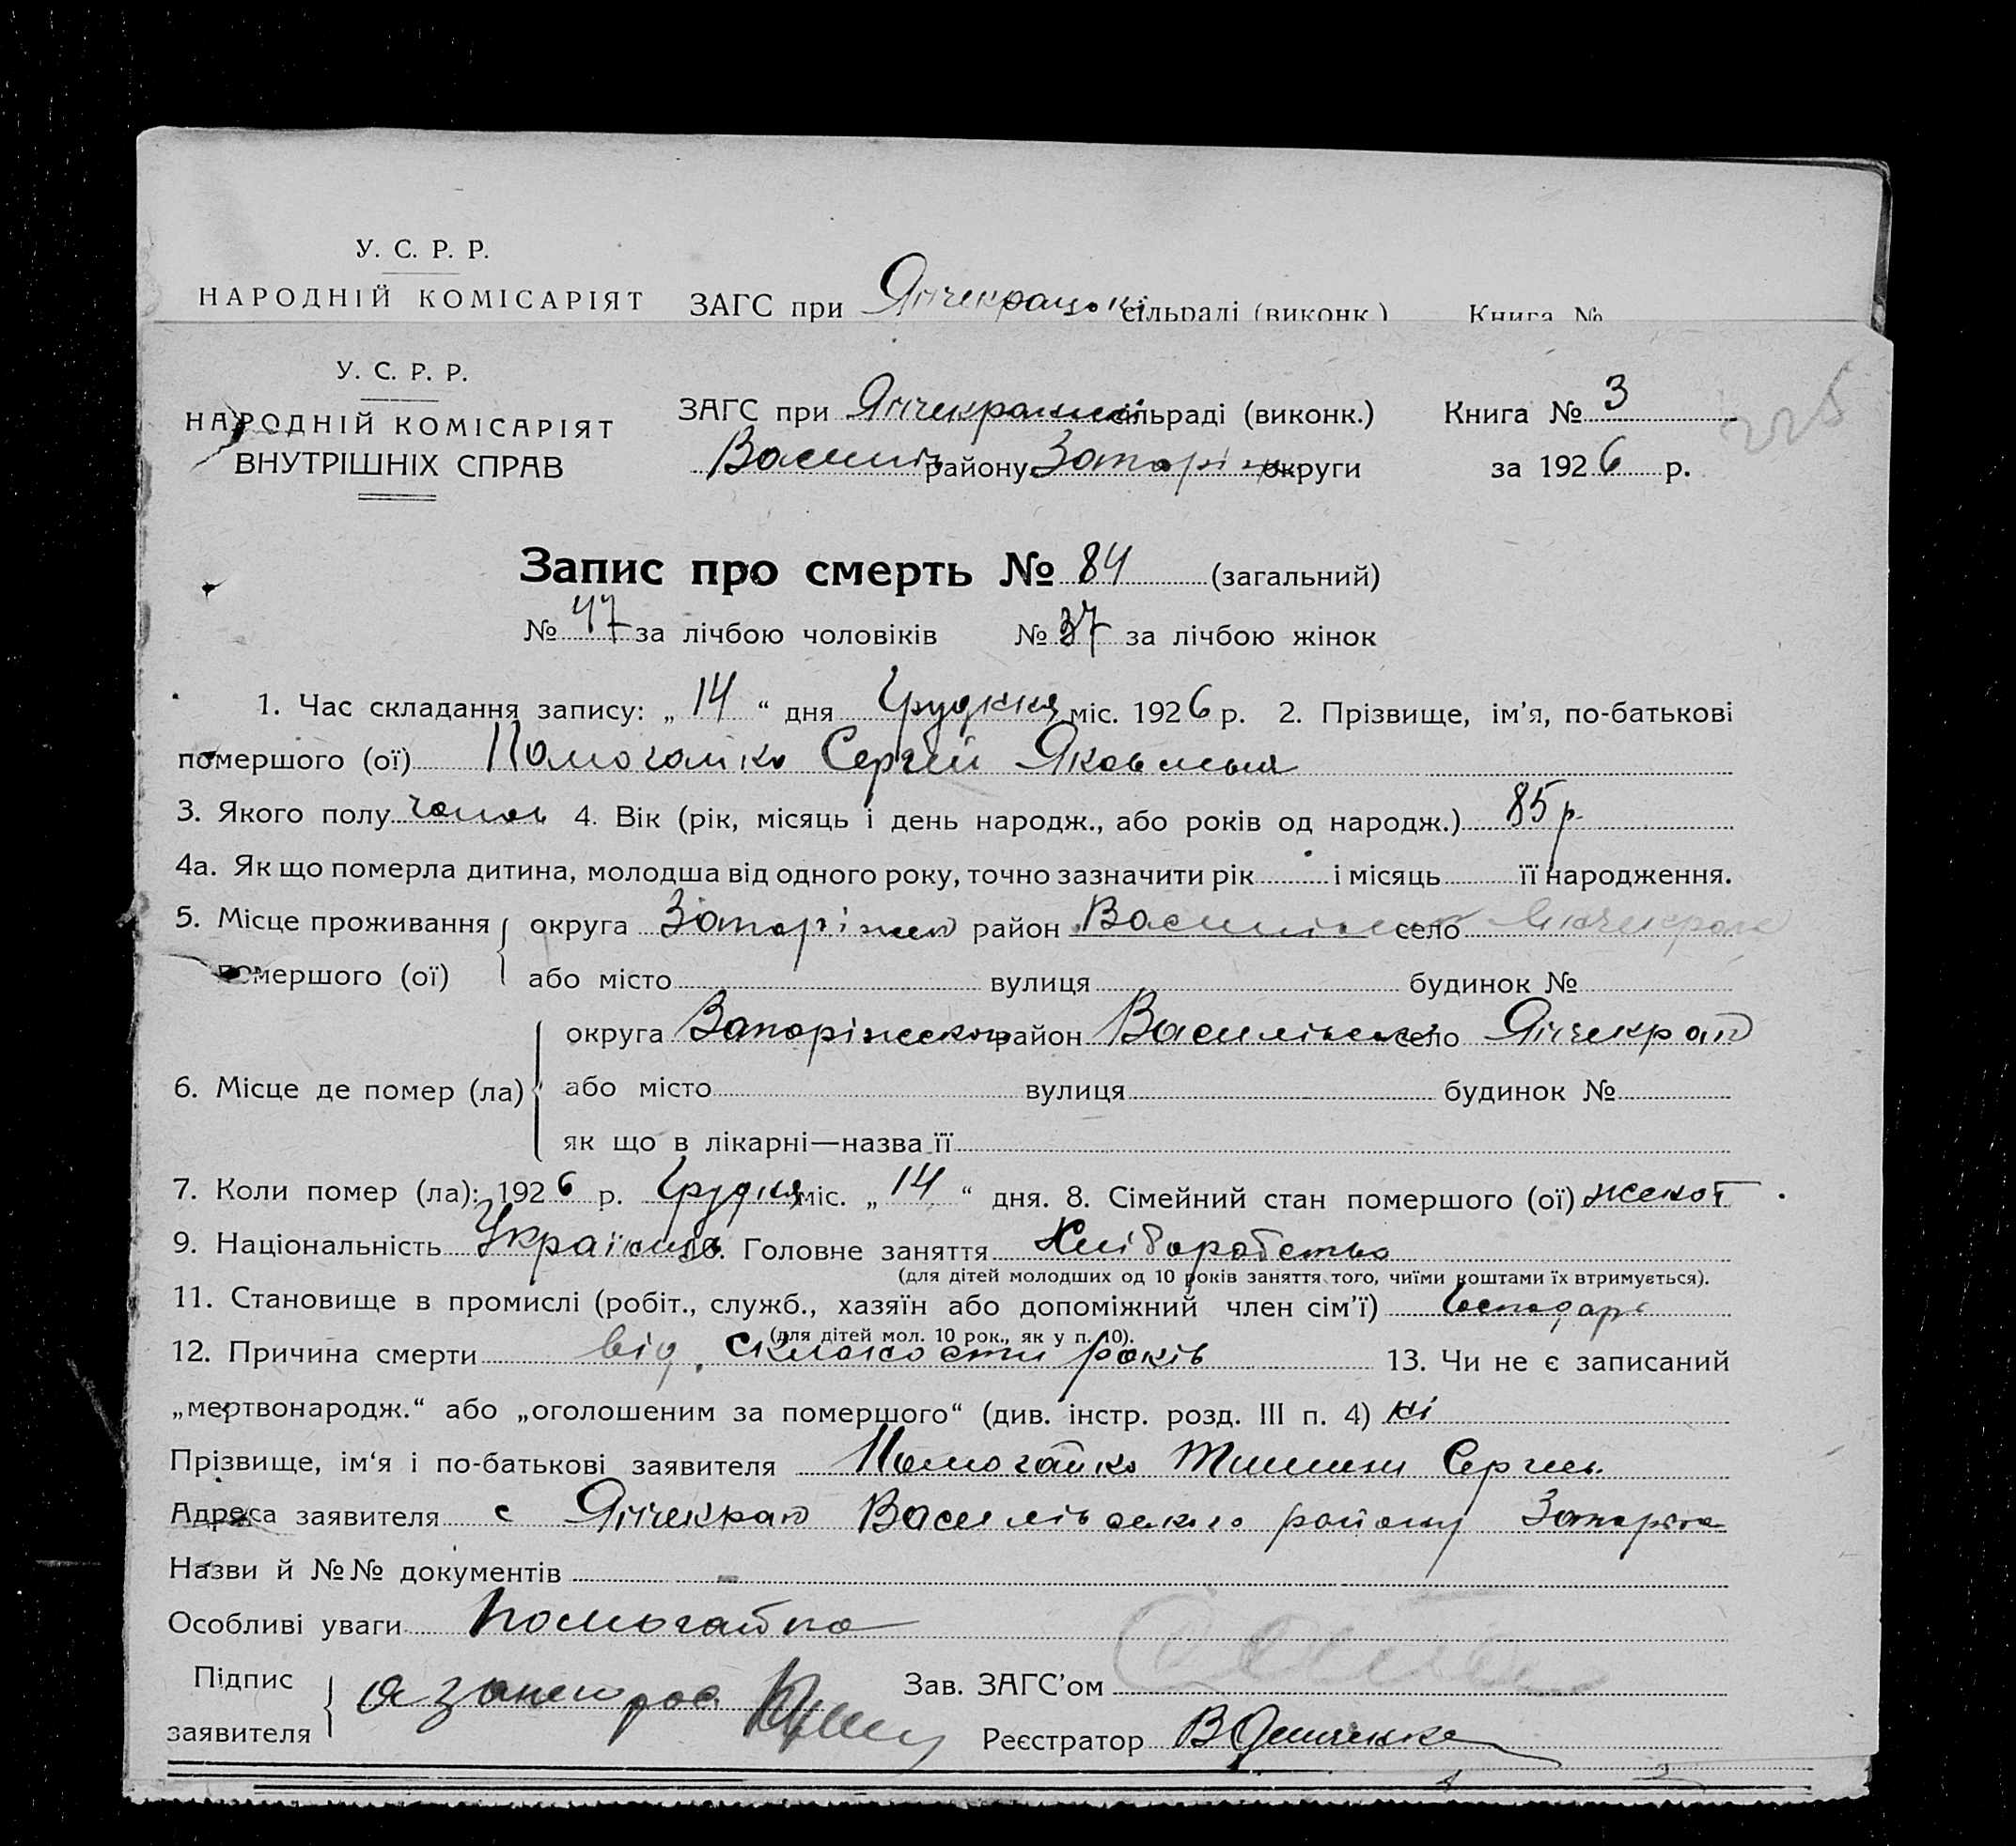 У. С. Р. Р.
НАРОДНІЙ КОМІСАРІЯТ ЗАГС при Янчекрацькі сільраді (виконк.) Книга №
У. С. Р. Р.
НАРОДНІЙ КОМІСАРІЯТ
ВНУТРІШНІХ СПРАВ
ЗАГС при Янчекракській сільраді (виконк.) Книга № 3
Василів району Запоріж округи за 1926 р.
226
Запис про смерть № 84 (загальний)
№ 47 за лічбою чоловіків № 37 за лічбою жінок
1. Час складання запису: „ 14 “ дня Грудня міс. 1926 р. 2. Прізвище, ім’я, по-батькові
помершого (ої) Помогайко Сергій Яковльч
3. Якого полу чолов 4. Вік (рік, місяць і день народж., або років од народж.) 85 р.
4а. Як що померла дитина, молодша від одного року, точно зазначити рік і місяць її народження.
5. Місце проживання помершого (ої) округа Запоріжск район Василівськ село Янчекрак
або місто вулиця будинок №
6. Місце де помер (ла) округа Запоріжском район Василівськ село Янчекрак
або місто вулиця будинок №
як що в лікарні—назва її
7. Коли помер (ла): 1926 р. Грудня міс. „ 14 “ дня. 8. Сімейний стан помершого (ої) женат
9. Національність Українець 10. Головне заняття Хліборобство
(для дітей молодших од 10 років заняття того, чиїми коштами їх втримується).
11. Становище в промислі (робіт., служб., хазяїн або допоміжний член сім’ї) Господарь
(для дітей мол. 10 рок., як у п. 10).
12. Причина смерти від старости років 13. Чи не є записаний
„мертвонародж.“ або „оголошеним за помершого“ (див. інстр. розд. III п. 4) ні
Прізвище, ім‘я і по-батькові заявителя Помогайко Сергієв.
Адреса заявителя с Янчекрак Василівського району Запоріж
Назви й №№ документів —
Особливі уваги Помогайко
Підпис заявителя
Зав. ЗАГС’ом
Реєстратор